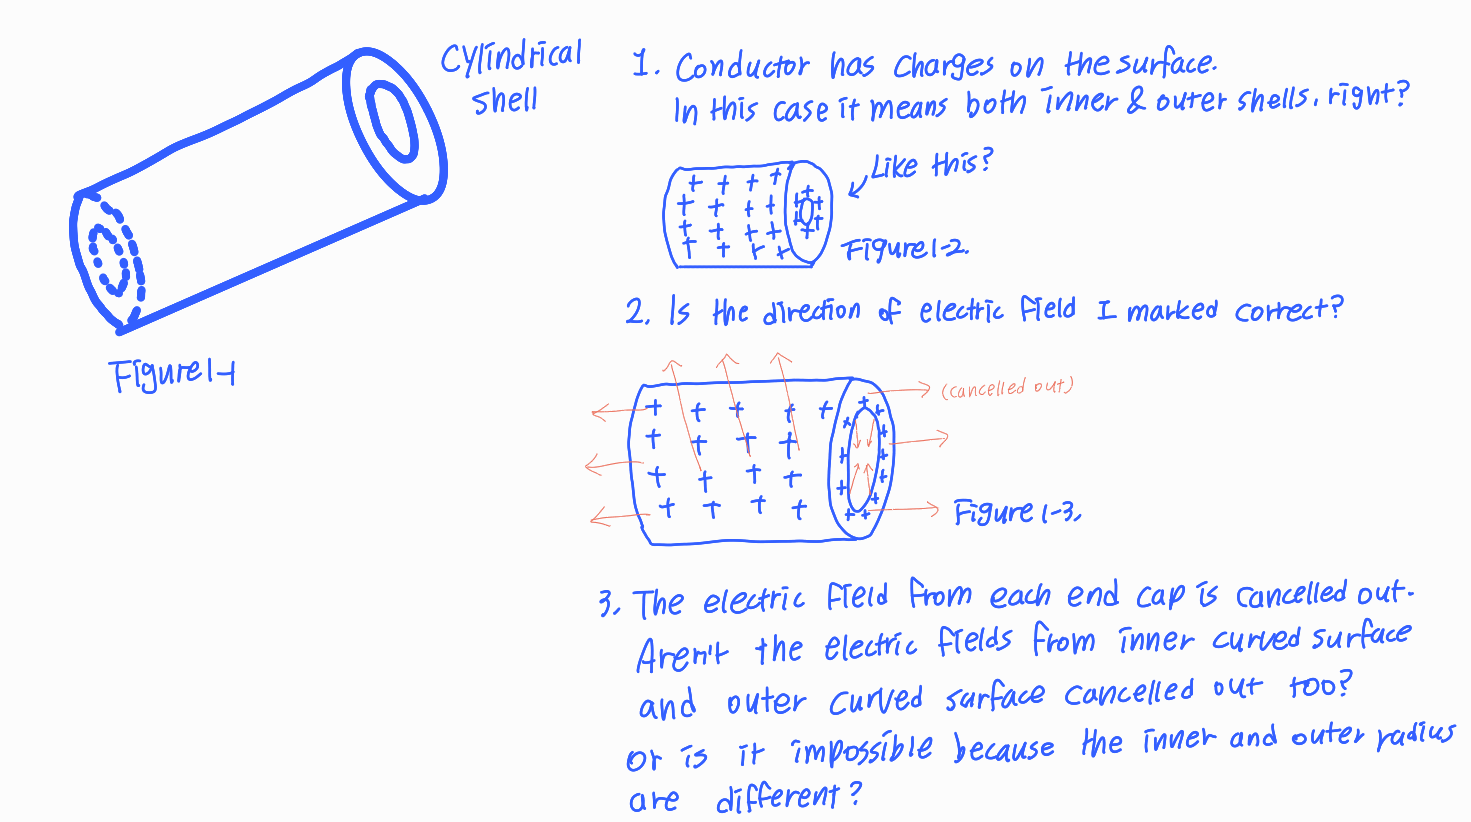 Cylindrical
shell
Figure 1-1
1. Conductor has charges on the surface.
In this case it means both inner & outer shells, right?
Like this?
Figure 1-2.
2. Is the direction of electric field I marked correct?
(cancelled out)
Figure 1-3.
3. The electric field from each end cap is cancelled out.
Aren't the electric fields from inner curved surface
and outer curved surface cancelled out too?
Or is it impossible because the inner and outer radius
are different?